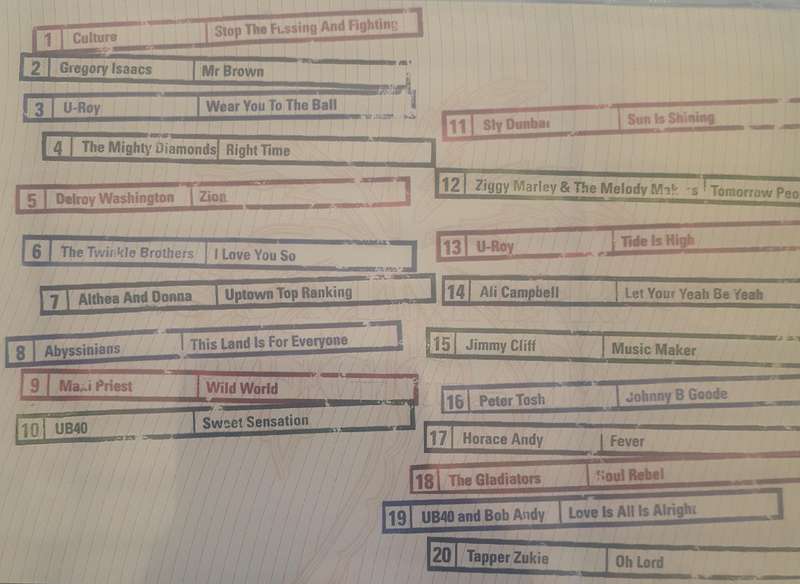 1 Culture Stop The Fussing And Fighting
2 Gregory Isaacs Mr Brown
3 U-Roy Wear You To The Ball
4 The Mighty Diamonds Right Time
5 Delroy Washington Zion
6 The Twinkle Brothers I Love You So
7 Althea And Donna Uptown Top Ranking
8 Abyssinians This Land Is For Everyone
9 Maxi Priest Wild World
10 UB40 Sweet Sensation
11 Sly Dunbar Sun Is Shining
12 Ziggy Marley & The Melody Makers Tomorrow Peo
13 U-Roy Tide Is High
14 Ali Campbell Let Your Yeah Be Yeah
15 Jimmy Cliff Music Maker
16 Peter Tosh Johnny B Goode
17 Horace Andy Fever
18 The Gladiators Soul Rebel
19 UB40 and Bob Andy Love Is All Is Alright
20 Tapper Zukie Oh Lord